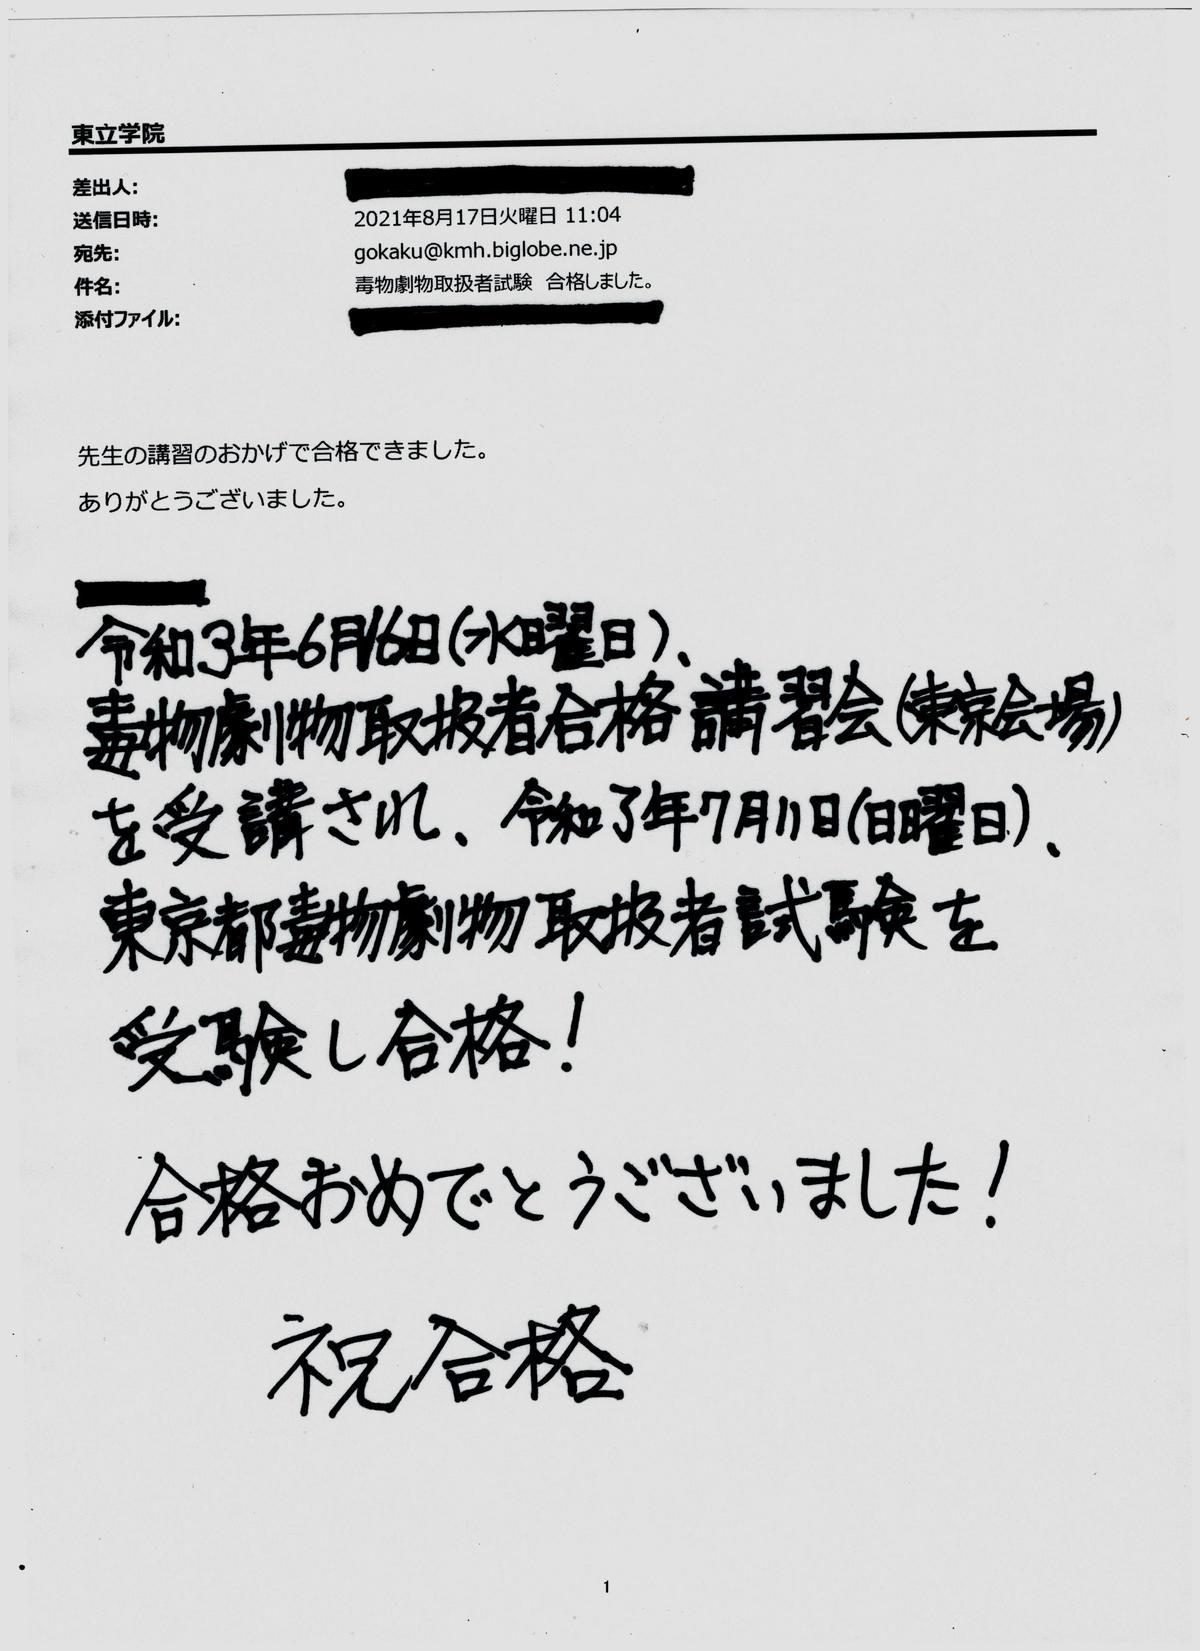 東立学院
差出人:
送信日時: 2021年8月17日火曜日 11:04
宛先: gokaku@kmh.biglobe.ne.jp
件名: 毒物劇物取扱者試験 合格しました。
添付ファイル:
先生の講習のおかげで合格できました。
ありがとうございました。
令和3年6月16日(水曜日)、
毒物劇物取扱者合格講習会(東京会場)
を受講され、令和3年7月11日(日曜日)、
東京都毒物劇物取扱者試験を
受験し合格!
合格おめでとうございました!
祝合格
1